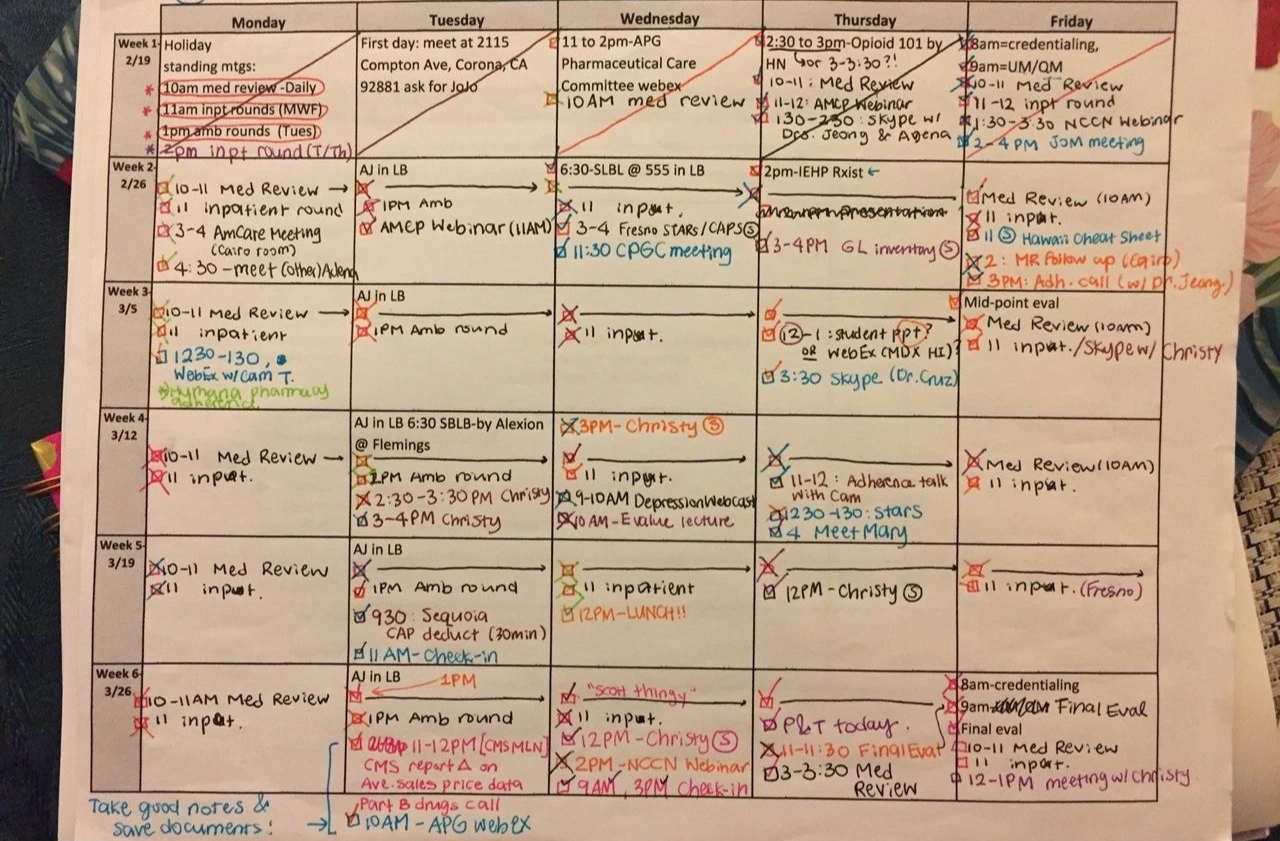 Monday
Tuesday
Wednesday
Thursday
Friday
Week 1-
2/19
Holiday
standing mtgs:
* 10am med review -Daily
* 11am inpt rounds (MWF)
* 1pm amb rounds (Tues)
* 2pm inpt round (T/Th)
First day: meet at 2115
Compton Ave, Corona, CA
92881 ask for JoJo
11 to 2pm-APG
Pharmaceutical Care
Committee webex
10AM med review
2:30 to 3pm-Opioid 101 by
HN ↳or 3-3:30?!
10-11: Med Review
11-12: AMCP Webinar
130-230: Skype w/
Drs. Jeong & Agena
8am=credentialing,
9am=UM/QM
10-11 Med Review
11-12 inpt round
1:30-3:30 NCCN Webinar
2-4 PM JOM meeting
Week 2-
2/26
10-11 Med Review →
11 inpatient round
3-4 AmCare Meeting
(Cairo room)
4:30 -meet (other) Adena
AJ in LB
1PM Amb
AMCP Webinar (11AM)
6:30-SLBL @ 555 in LB
11 input.
3-4 Fresno STARS/CAPS Ⓢ
11:30 CPGC meeting
2pm-IEHP Rxist ←
3-4PM GL inventory Ⓢ
Med Review (10AM)
11 input.
11 Ⓢ Hawaii Cheat Sheet
2: MR Follow up (Cairo)
3PM: Adh. call (w/ Dr. Jeong)
Week 3-
3/5
10-11 Med Review →
11 inpatient
1230-130,
WebEx w/ Cam T.
Humana pharmacy
AJ in LB
1PM Amb round
11 input.
12-1: student ppt?
OR WebEx (MDX HI)?
3:30 Skype (Dr. Cruz)
Mid-point eval
Med Review (10AM)
11 input./Skype w/ Christy
Week 4-
3/12
10-11 Med Review →
11 input.
AJ in LB 6:30 SBLB-by Alexion
@ Flemings
1PM Amb round
2:30-3:30 PM Christy
3-4PM Christy
3PM- Christy Ⓢ
11 input.
9-10AM Depression Webcast
10 AM-Evalue lecture
11-12: Adherence talk
with Cam
1230-130: Stars
4 Meet Mary
Med Review (10AM)
11 input.
Week 5-
3/19
10-11 Med Review
11 input.
AJ in LB
1PM Amb round
930: Sequoia
CAP deduct (30min)
11 AM- Check-in
11 inpatient
12PM-LUNCH!!
12PM-Christy Ⓢ
11 input. (Fresno)
Week 6-
3/26
10-11AM Med Review
11 input.
AJ in LB
1PM
1PM Amb round
11-12PM [CMS MLN]
CMS report Δ on
Ave. sales price data
Part B drugs call
10AM-APG webex
"Scott thingy"
11 input.
12PM-Christy Ⓢ
2PM-NCCN Webinar
9AM, 3PM Check-in
P&T today.
11-11:30 Final Eval
3-3:30 Med
Review
8am-credentialing
9am- Final Eval
Final eval
10-11 Med Review
11 input.
12-1PM meeting w/ Christy
Take good notes &
save documents! →